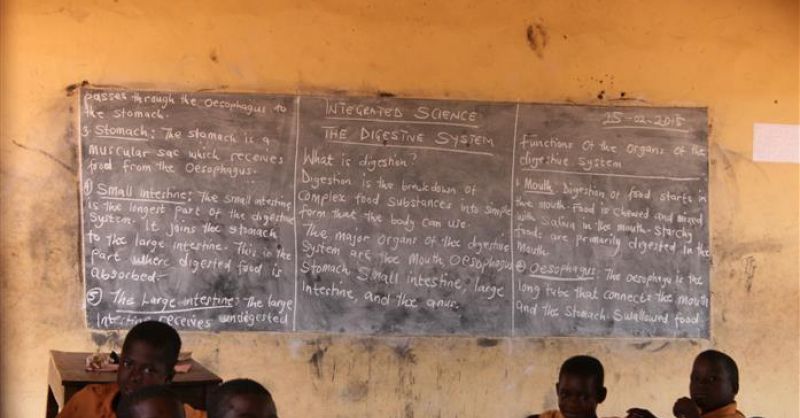 passes through the Oesophagus to
the stomach.
3 Stomach: The stomach is a
muscular sac which receives
food from the Oesophagus.
4) Small intestine: The small intestine
is the longest part of the digestive
System. It joins the stomach
to the large intestine. This is the
part where digested food is
absorbed.
5) The Large intestine: The large
Intestine receives undigested
INTEGRATED SCIENCE
THE DIGESTIVE SYSTEM
What is digestion?
Digestion is the breakdown of
Complex food substances into simple
form that the body can use.
The major organs of the digestive
System are the Mouth, Oesophagus
Stomach, Small intestine, large
Intestine, and the anus.
25-02-2015
Functions of the organs of the
digestive system
1. Mouth: Digestion of food starts in
the mouth. Food is chewed and mixed
with Saliva in the mouth. Starchy
foods are primarily digested in the
Mouth.
2) Oesophagus: The oesophagus is the
long tube that connects the mouth
and the Stomach. Swallowed food